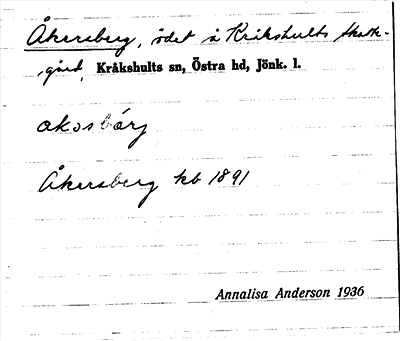 Åkersberg, ödet å Kråkshults skatte-
gård, Kråkshults sn, Östra hd, Jönk. l.
akosbárj
Åkersberg kb 1891
Annalisa Anderson 1936